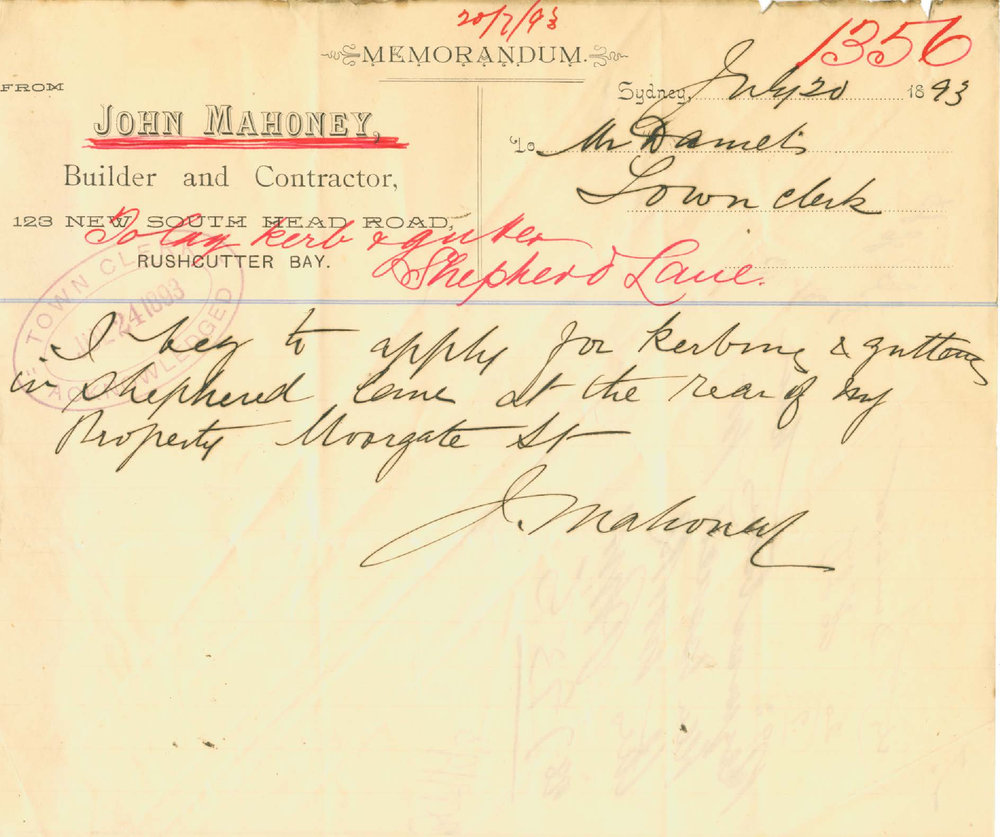 20/7/93
1356
MEMORANDUM.
FROM
Sydney, July 20 1893
JOHN MAHONEY,
To Mr Daniels
Builder and Contractor,
Town Clerk
123 NEW SOUTH HEAD ROAD,
To lay kerb & gutter
RUSHCUTTER BAY.
Shepherd Lane.
TOWN CLERK
24 1893
ACKNOWLEDGED
I beg to apply for kerbing & guttering
in Shepherd Lane at the rear of my
Property Moorgate St
J. Mahoney